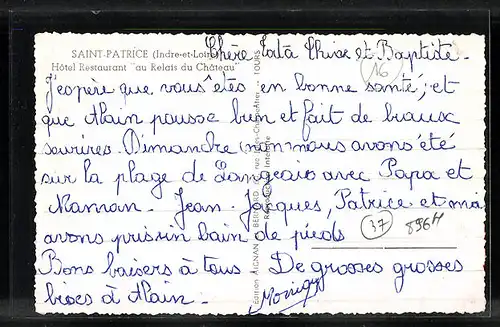 SAINT-PATRICE (Indre-et-Loire)
Hôtel Restaurant "au Relais du Château"
Chère Tata et Baptiste.
16
J'espère que vous êtes en bonne santé, et
que Alain pousse bien et fait de beaux
sourires. Dimanche nous avons été
sur la plage de Langeais avec Papa et
Maman. Jean-Jacques, Patrice et moi
avons pris un bain de pieds
37
896H
Bons baisers à tous De grosses grosses
bises à Alain.
Edition AIGNAN BERNARD TOURS
Reproduction Interdite